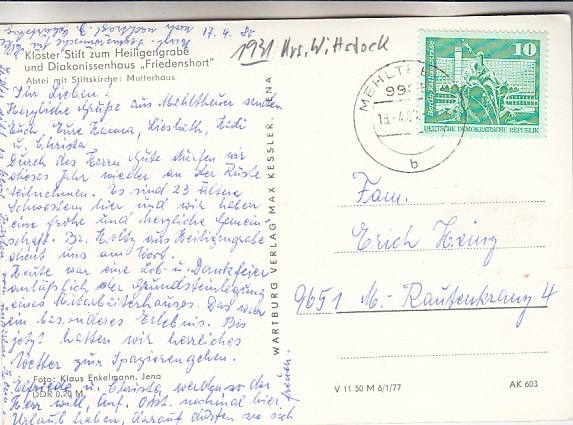 17.4.80
Kloster Stift zum Heiligengrabe
und Diakonissenhaus „Friedenshort"
Abtei mit Stiftskirche: Mutterhaus
1931 Krs. Wittstock
Ihr Lieben!
Herzliche Grüße aus Mehltheuer senden
Euch, Eure Hanna, Liesbeth, Heidi
u. Christa
Durch des Herrn Güte dürfen wir
dieses Jahr wieder an der Rüste
teilnehmen. Es sind 23 ältere
Schwestern hier und wir haben
eine frohe und herzliche Gemein-
schaft. Br. Holtz aus Heiligengrabe
dient uns am Wort.
Heute war eine Lob- u. Dankfeier
anläßlich der Grundsteinlegung
eines Mitarbeiterhauses. Das war
ein besonderes Erlebnis. Bis
jetzt hatten wir herrliches
Wetter zum Spazierengehen.
Elfriede u. Christa werden so der
Herr will, Anf. Okt. nochmal hier
Urlaub haben, darauf dürfen sie sich
freuen.
Foto: Klaus Enkelmann, Jena
DDR 0,20 M
WARTBURG VERLAG MAX KESSLER, JENA
MEHLTHEUER
b
10
DEUTSCHE DEMOKRATISCHE REPUBLIK
Fam.
Erich Heinz
9651 M.-Rautenkranz 4
V 11 50 M 6/1/77
AK 603